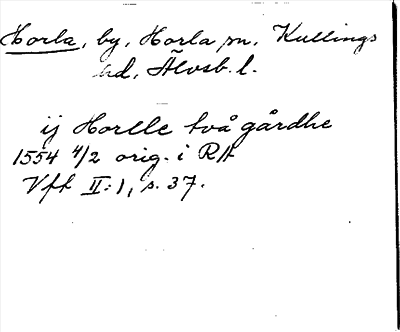 Horla, by, Horla sn. Kullings
hd, Älvsb. l.
ij Horlle två gårdhe
1554 4/2 orig. i RA
Vfh II:1, s. 37.